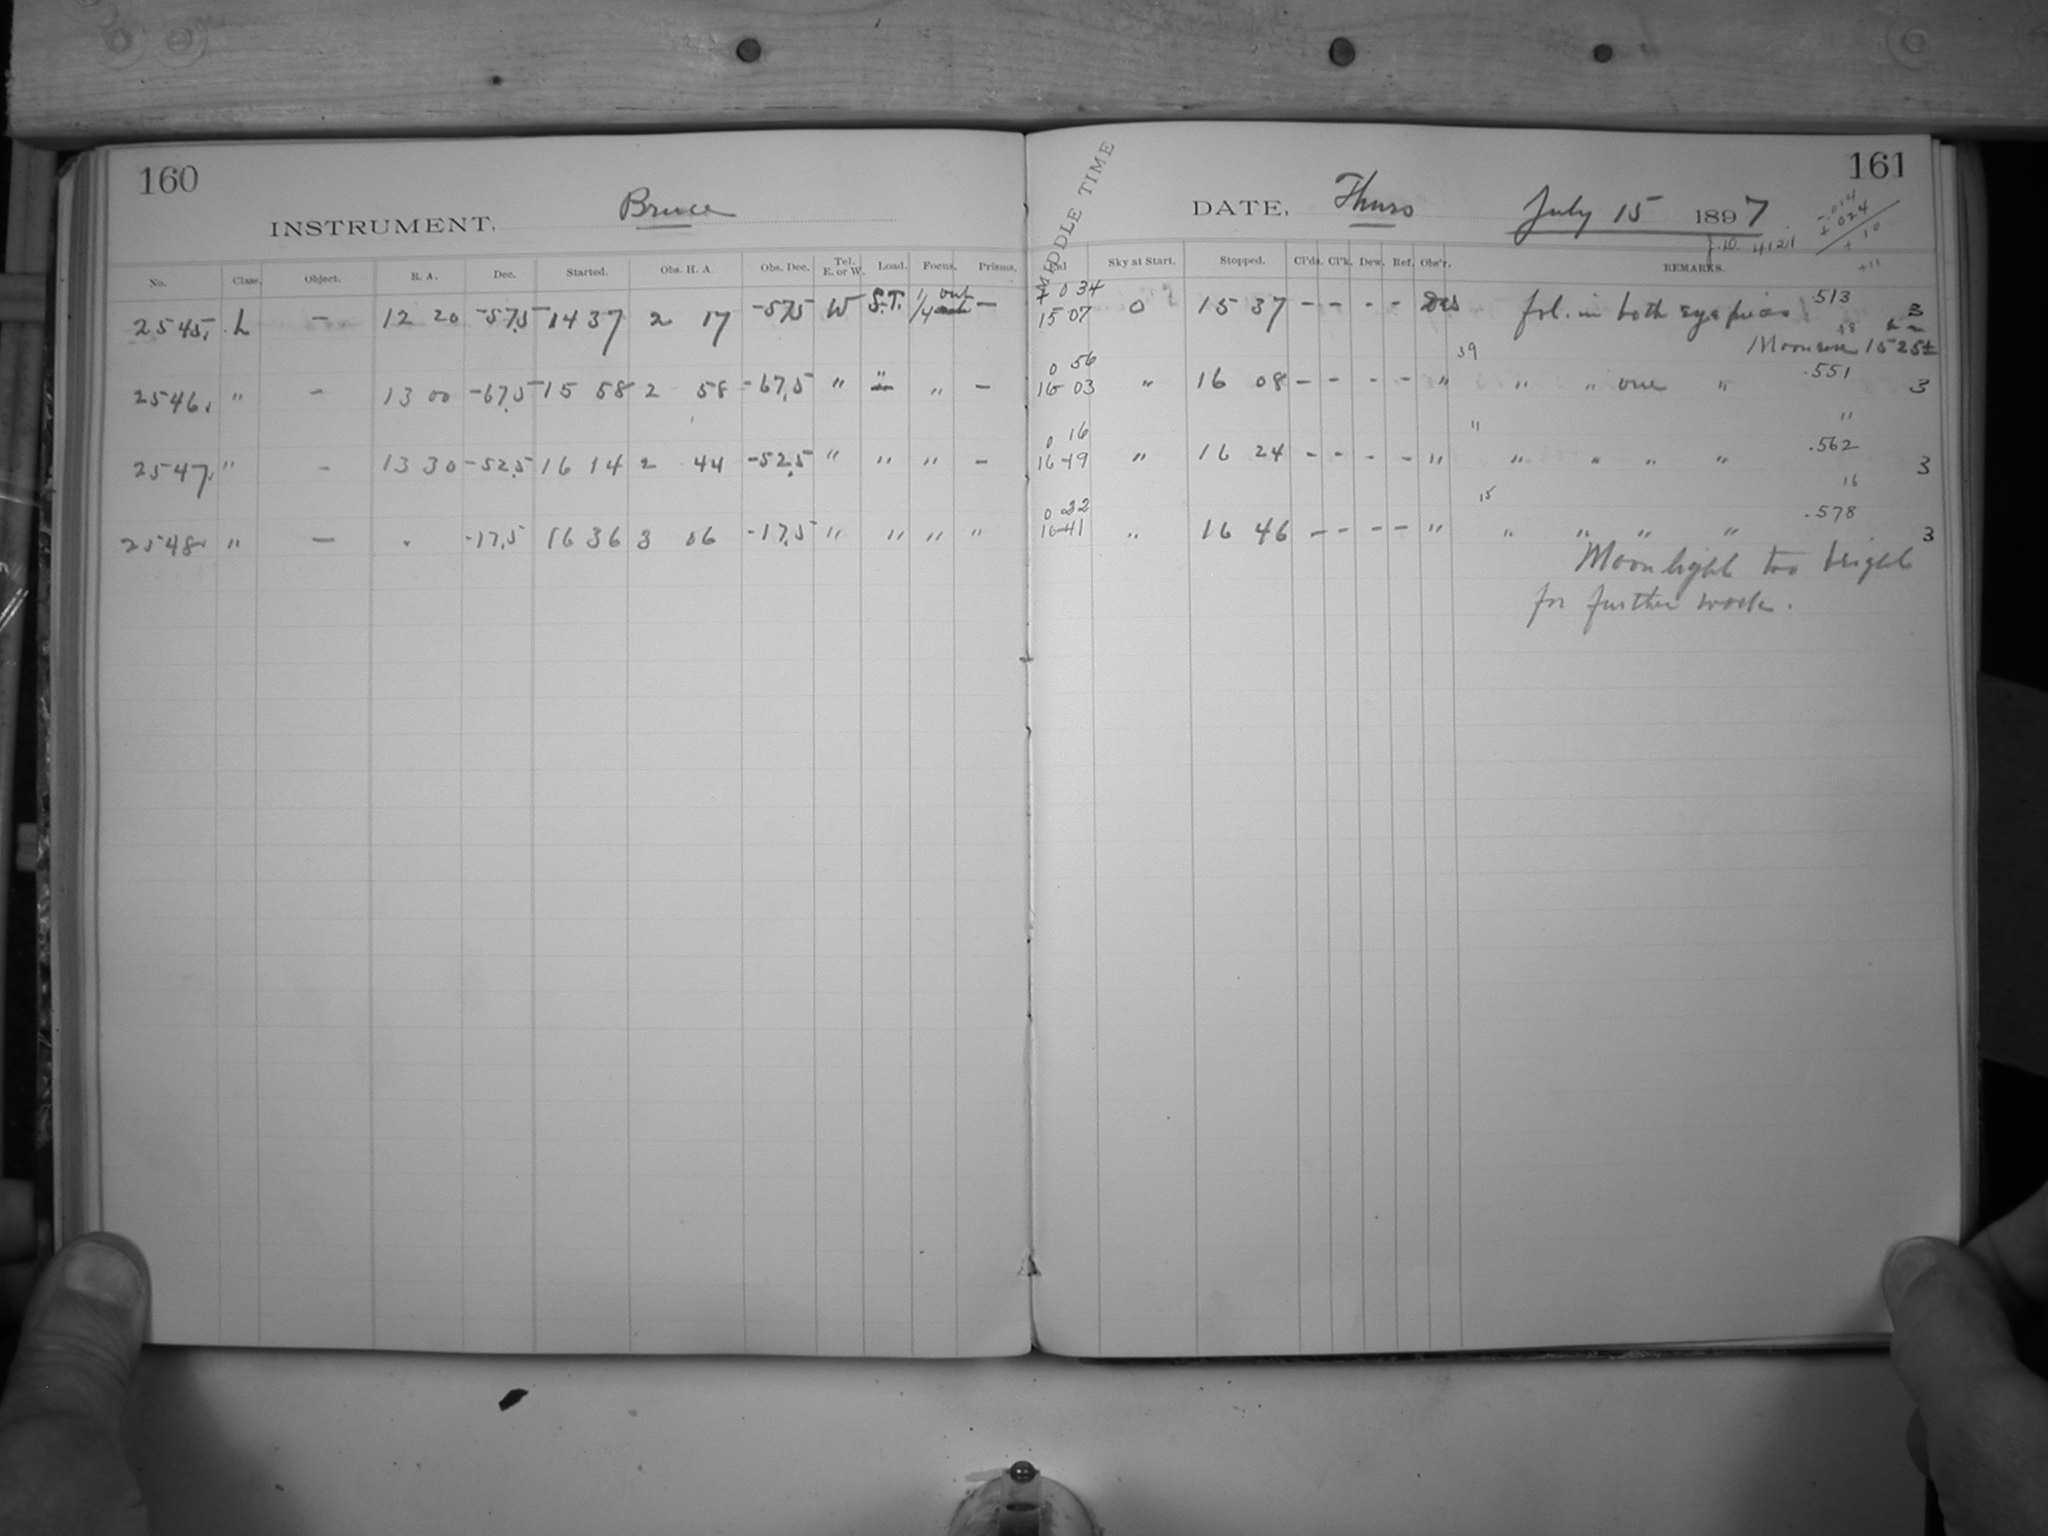 160
INSTRUMENT, Bruce
No. Class. Object. R. A. Dec. Started. Obs. H. A. Obs. Dec. Tel. E. or W. Load. Focus. Prisms.
2545. L — 12 20 -57.5 14 37 2 17 -57.5 W S.T. 1/4 out —
2546. " — 13 00 -67.5 15 58 2 58 -67.5 " " " —
2547. " - 13 30 -52.5 16 14 2 44 -52.5 " " " -
2548. " — " -17.5 16 36 3 06 -17.5 " " " "
161
MIDDLE TIME
DATE, Thurs July 15 1897
-.014
+.024
+ 10
+11
Sky at Start. Stopped. Cl'ds. Cl'k. Dew. Ref. Obs'r. REMARKS.
0 34 .513
15 07 0 15 37 - - - - fol. in both eyepieces 3
Moonrise 15 25±
0 56 39 .551
16 03 " 16 08 - - - - " " " one " 3
0 16 11 11 .562
16 19 " 16 24 - - - - " " " " " 3
0 22 15 16 .578
16 41 " 16 46 - - - - " " " " " 3
Moonlight too bright
for further work.